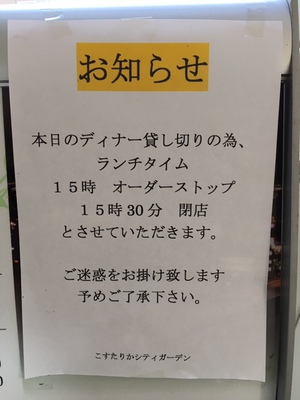 お知らせ
本日のディナー貸し切りの為、
ランチタイム
１５時　オーダーストップ
１５時30分　閉店
とさせていただきます。
ご迷惑をお掛け致します
予めご了承下さい。
こすたりかシティガーデン